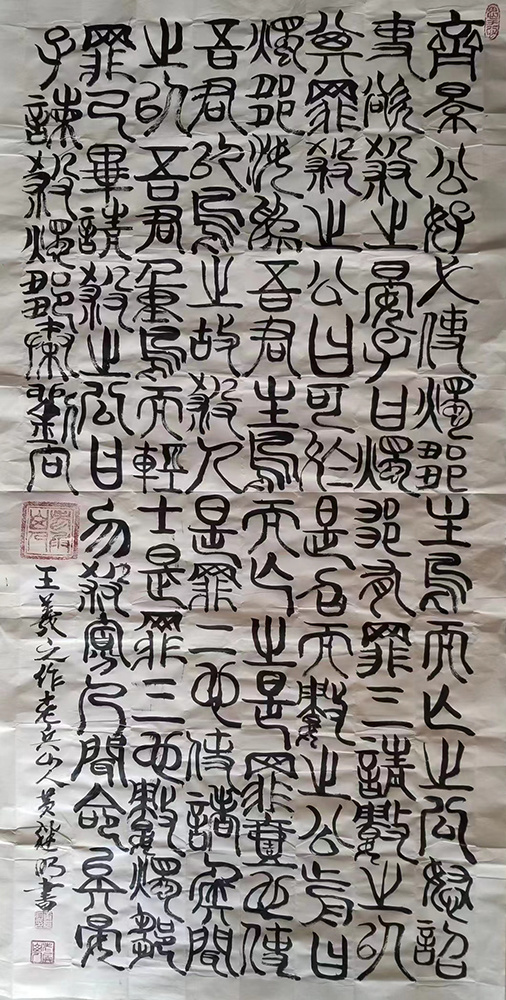 齊景公好弋使燭鄒主鳥而亡之公怒詔
吏欲殺之晏子曰燭鄒有罪三請數之以
其罪殺之公曰可於是召而數之公前曰
燭鄒汝為吾君主鳥而亡之是罪壹也使
吾君以鳥之故殺人是罪二也使諸侯聞
之以吾君重鳥而輕士是罪三也數燭鄒
罪已畢請殺之公曰勿殺寡人聞命矣晏
子諫殺燭鄒向
王羲之作老兵山人黄继明書